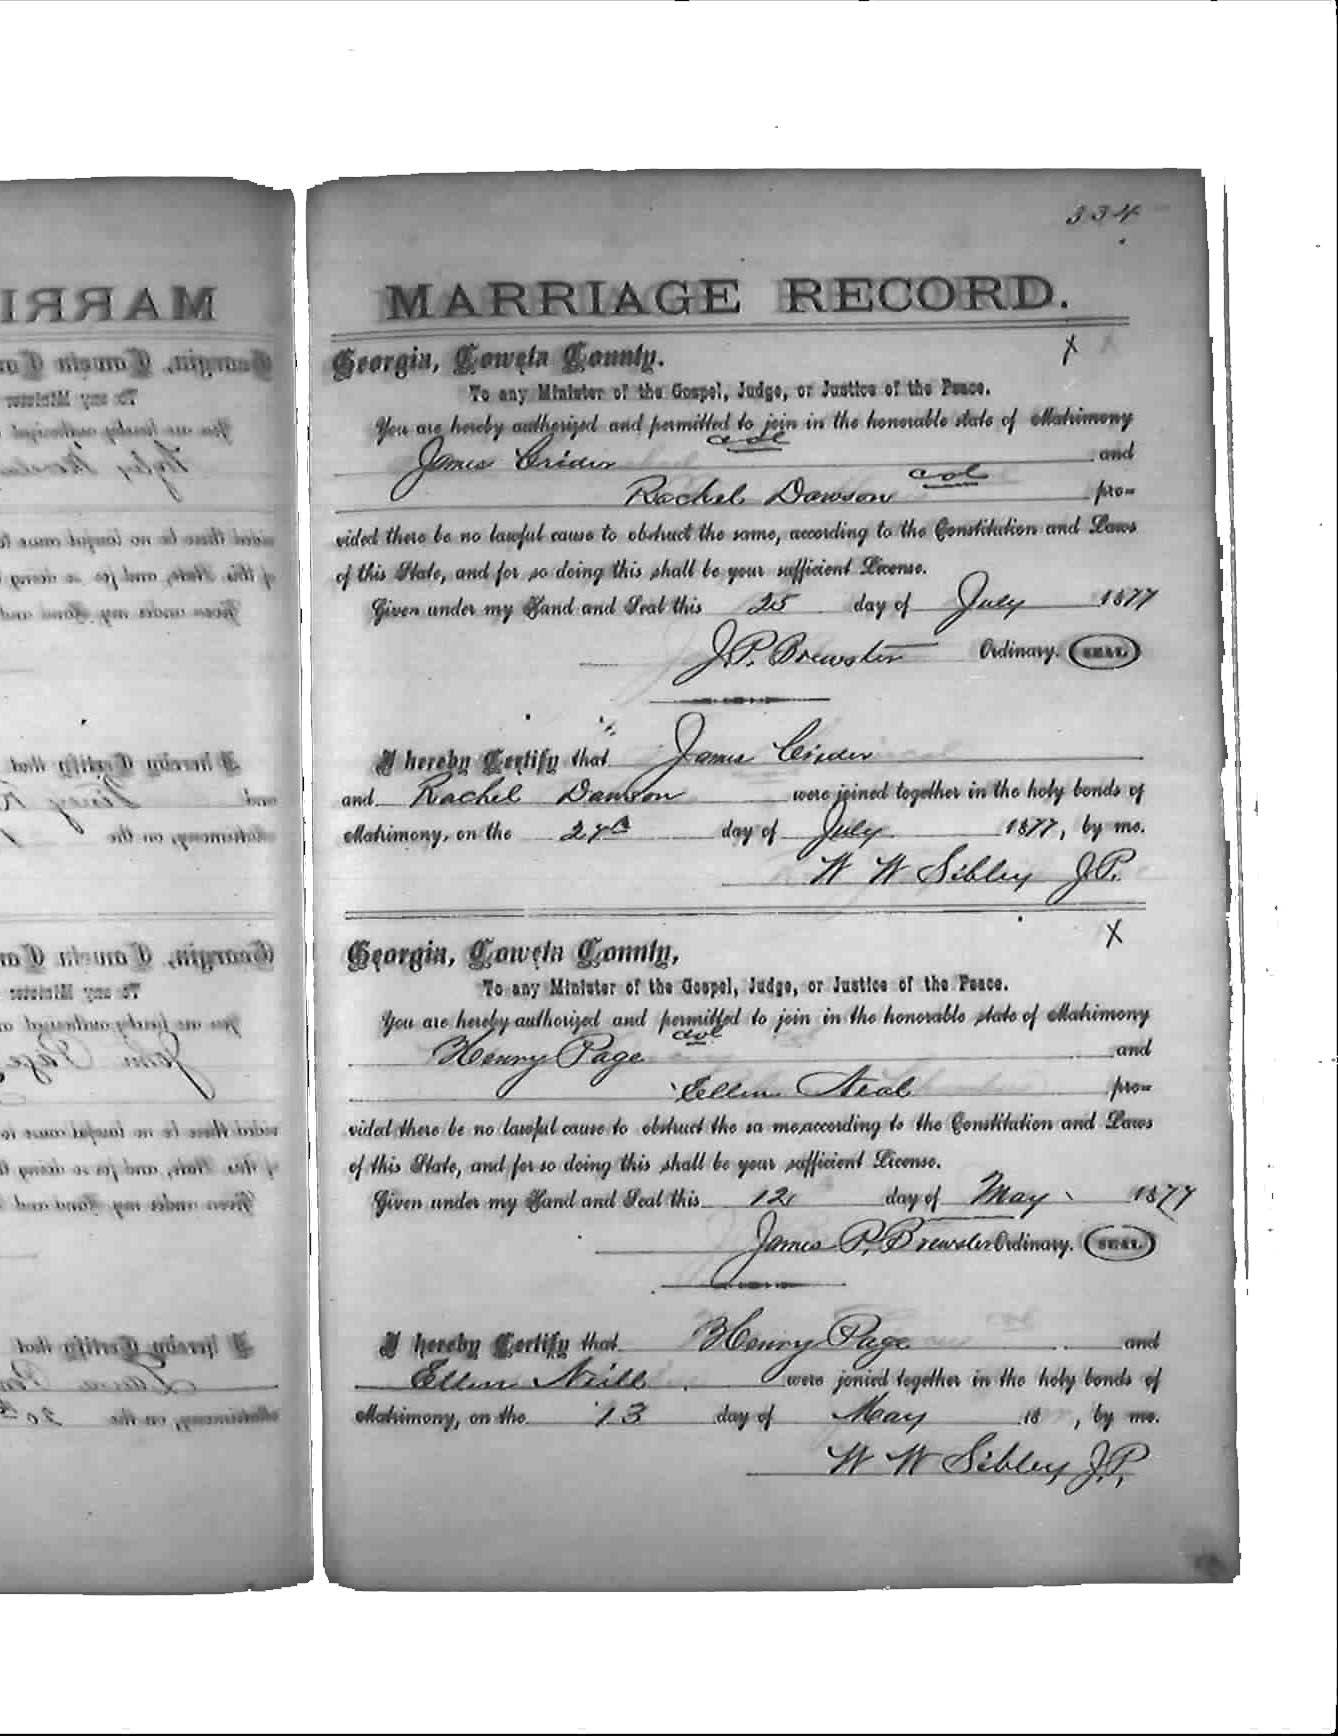 334
MARRIAGE RECORD.
Georgia, Coweta County.
X
To any Minister of the Gospel, Judge, or Justice of the Peace.
You are hereby authorized and permitted to join in the honorable state of Matrimony
James Crider col and
Rachel Dawson col pro-
vided there be no lawful cause to obstruct the same, according to the Constitution and Laws
of this State, and for so doing this shall be your sufficient License.
Given under my Hand and Seal this 25 day of July 1877
J. P. Brewster Ordinary. SEAL.
I hereby Certify that James Crider
and Rachel Dawson were joined together in the holy bonds of
Matrimony, on the day of July 1877, by me.
W W Sibley J.P.
Georgia, Coweta County,
X
To any Minister of the Gospel, Judge, or Justice of the Peace.
You are hereby authorized and permitted to join in the honorable state of Matrimony
Henry Page col and
Ellen Neal pro-
vided there be no lawful cause to obstruct the sa me, according to the Constitution and Laws
of this State, and for so doing this shall be your sufficient License.
Given under my Hand and Seal this 12 day of May 1877
James P. Brewster Ordinary. SEAL.
I hereby Certify that Henry Page and
Ellen Neill were jonied together in the holy bonds of
Matrimony, on the 13 day of May 18 , by me.
W W Sibley J.P.